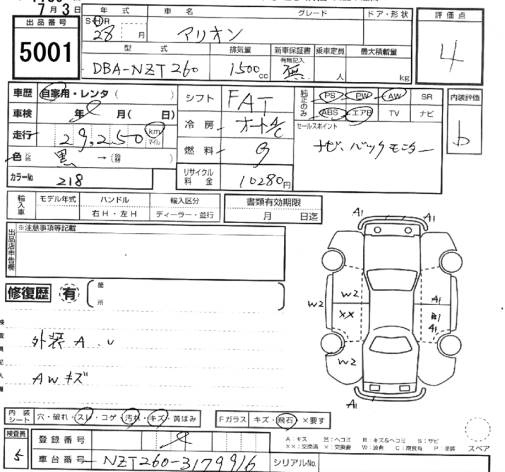 7月3日
出品番号
5001
年式 車名 グレード ドア・形状
SH
28 月 アリオン
型式 排気量 新車保証書 乗車定員 最大積載量
有無記入
DBA-NZT260 1500cc 無 人 kg
評価点
4
車歴 自家用・レンタ( )
車検 年 月( 日)
走行 29,250 km マイル
色 黒 →
カラーNo 218
シフト FAT
冷房 オートA/C
燃料 G
リサイクル料金 10280円
純正のみ
PS PW AW SR
ABS エアB TV ナビ
セールスポイント
ナビ、バックモニター
内装評価
b
輸入車
モデル年式 ハンドル 輸入区分
右H・左H ディーラー・並行
書類有効期限
月 日迄
出品店申告欄
※注意事項等記載
修復歴 有 箇所
外装A、U
AWキズ
A1
A1
W2
W2
XX
W2
A1
B1
A1
A1
A1
内装シート 穴・破れ・スレ・コゲ・汚れ・キズ・黄ばみ
Fガラス キズ・飛石・×要す
検査員
5
登録番号
車台番号 NZT260-3179916
シリアルNo.
A:キズ E:エクボ B:キズ&ヘコミ S:サビ
××:交換済 ×:交換要 W:波有 C:腐食有 P:塗装
スペア